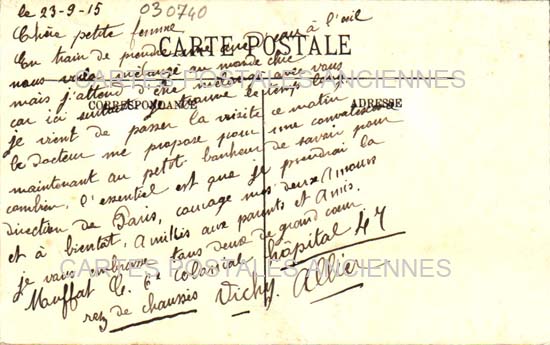 le 23-9-15
030740
Chère petite femme
En train de prendre une cure d'eaux à l'œil
CARTE POSTALE
nous mélangé au monde chic
mais j'attends être mélangé avec vous
CARTES POSTALES ANCIENNES
car ici surtout je trouve le temps long
CORRESPONDANCE
ADRESSE
je vient de passer la visite ce matin
le docteur me propose pour une convalescence
maintenant au petit bonheur de savoir pour
combien, l'essentiel est que je prendrai la
direction de Paris, courage mes deux Amours
et à bientot, Amitiés aux parents et Amis.
je vous embrasse tous deux de grand cœur
CARTES POSTALES ANCIENNES
Mouffat G. 6e Colonial hôpital 47
rez de chaussée Vichy. Allier